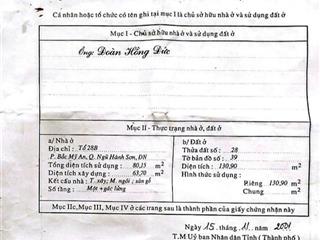 Cá nhân hoặc tổ chức có tên ghi tại mục I là chủ sở hữu nhà ở và sử dụng đất ở
Mục I - Chủ sở hữu nhà ở và sử dụng đất ở
Ông: Đoàn Hồng Đức
Mục II - Thực trạng nhà ở, đất ở
a/ Nhà ở
Địa chỉ : Tổ 28B
P. Bắc Mỹ An, Q. Ngũ Hành Sơn, ĐN
Tổng diện tích sử dụng : 80,15 m2
Diện tích xây dựng : 63,70 m2
Kết cấu nhà : T. xây; M. ngói ; sàn gỗ
Số tầng : Một + gác lửng
b/ Đất ở
Thửa đất số : 28
Tờ bản đồ số : 39
Diện tích : 130,90 m2
Hình thức sử dụng :
Riêng : 130,90 m2
Chung : m2
Mục IIc, Mục III, Mục IV ở các trang sau là thành phần của giấy chứng nhận này
Ngày 15 . 11 . 2001
T.M Uỷ ban Nhân dân Tỉnh ( Thành phố )